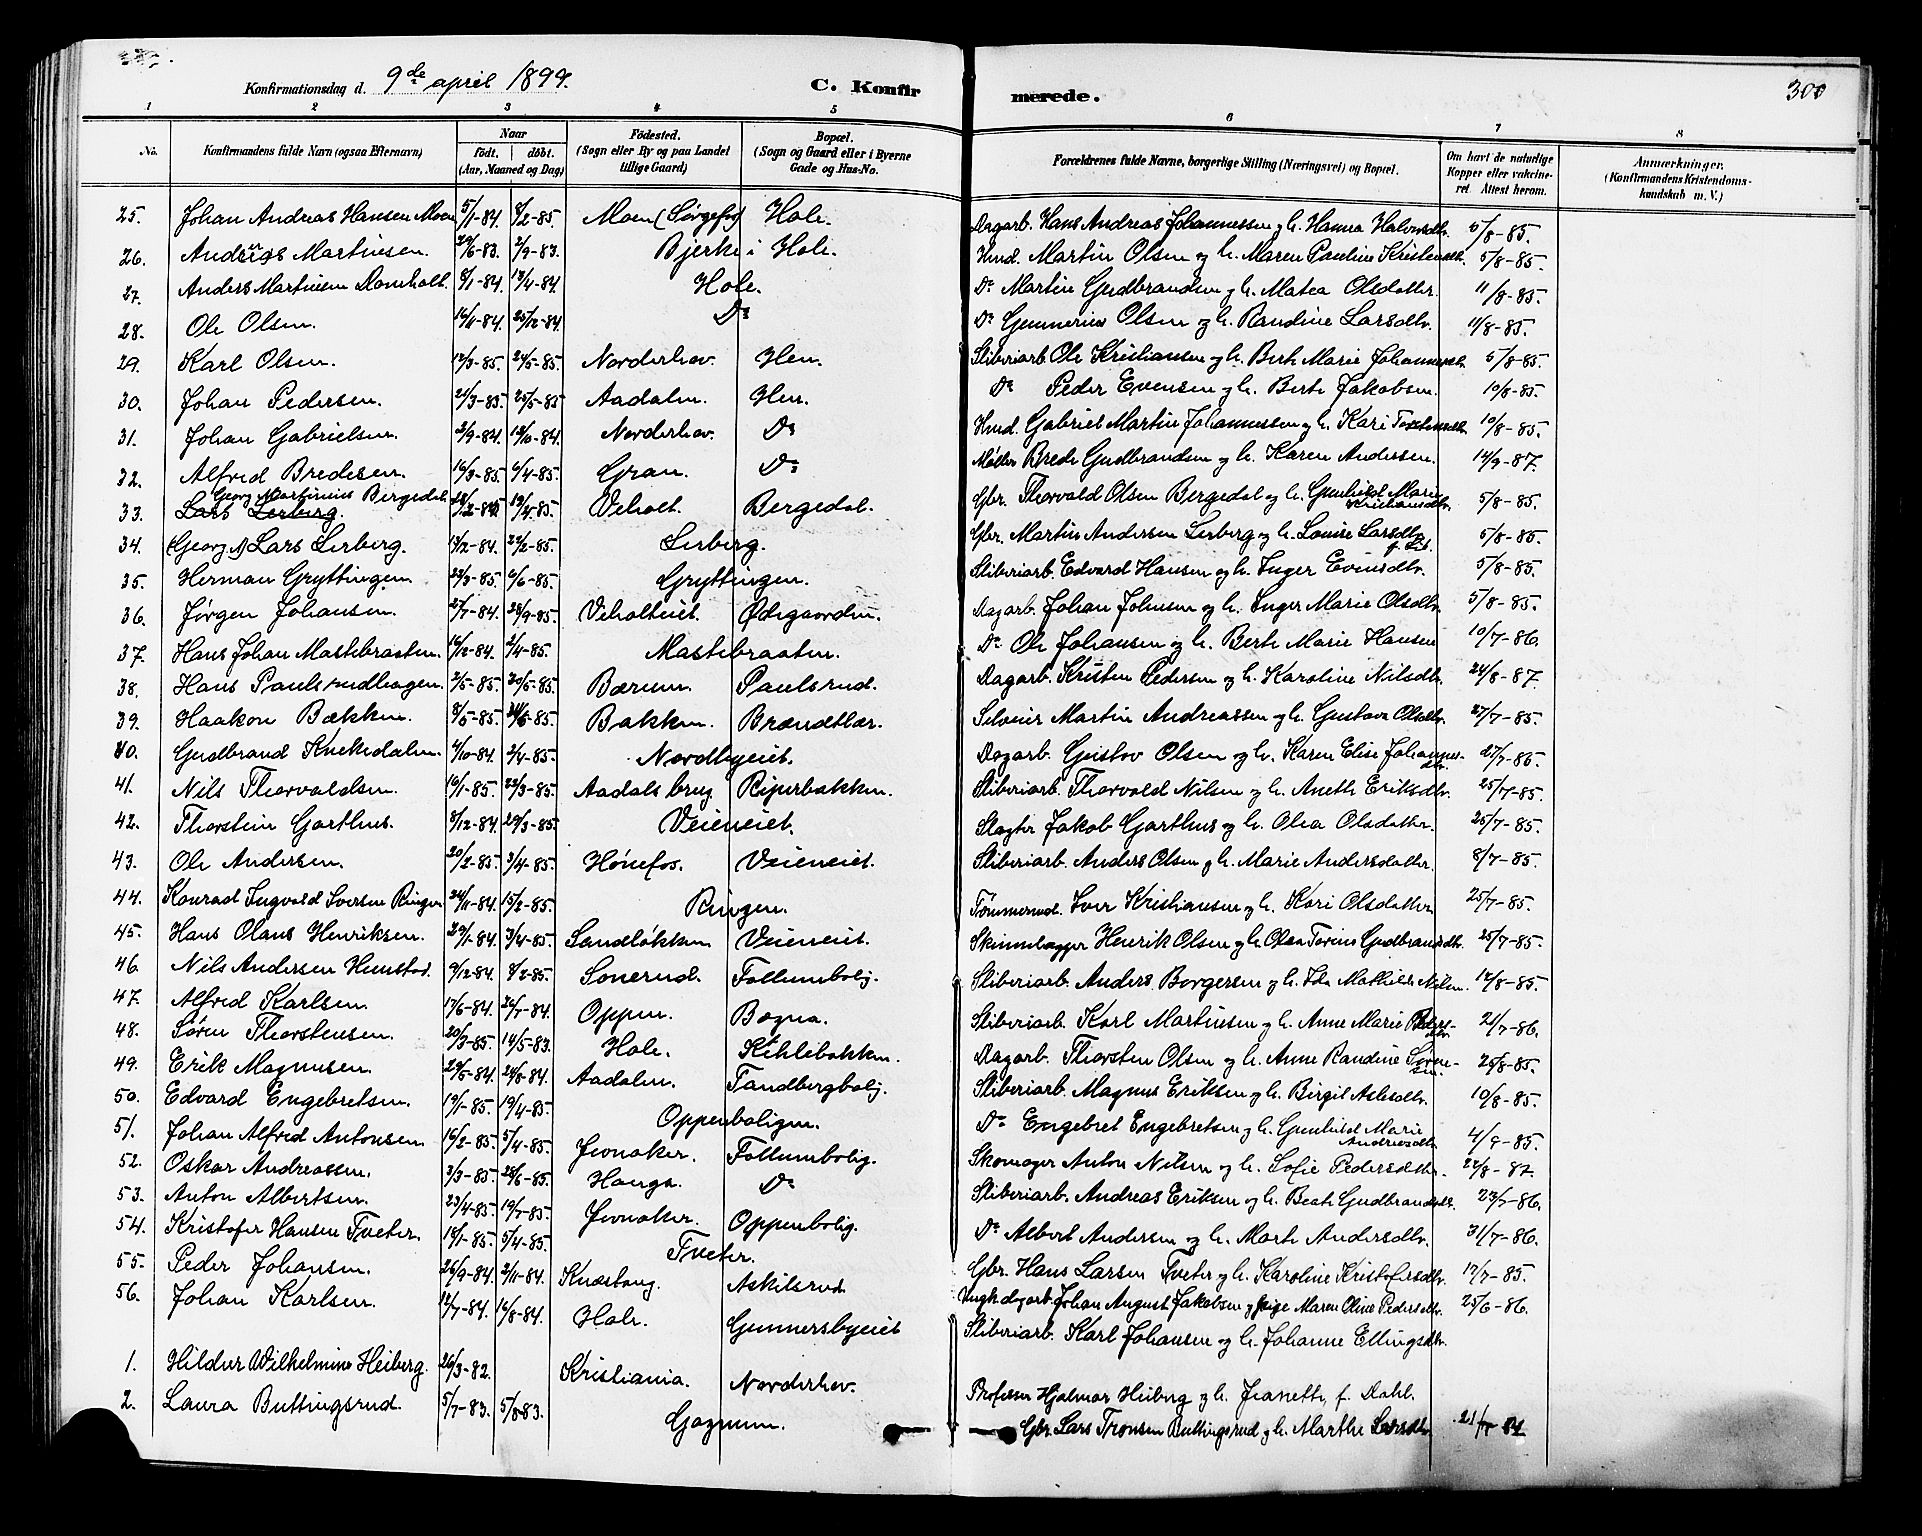 Konfirmationsdag d. 9de april 1899.
C. Konfirmerede.
300
1 2 3 4 5 6 7 8
No. Konfirmandens fulde Navn (ogsaa Efternavn) Naar født. døbt. (Aar, Maaned og Dag) Fødested. (Sogn eller By og paa Landet tillige Gaard) Bopæl. (Sogn og Gaard eller i Byerne Gade og Hus-No. Forældrenes fulde Navne, borgerlige Stilling (Næringsvei) og Bopæl. Om havt de naturlige Kopper eller vaccineret. Attest herom. Anmærkninger. (Konfirmandens Kristendomskundskab m. V.)
25. Johan Andreas Hansen Moen 5/1-84. 8/2-85. Moen (Sørgefos) Hole. Dagarb. Hans Andreas Johannessen og h. Hanna Halvorsdtr. 5/8-85.
26. Martinsen. 2/9-83. Bjerke i Hole. Hmd. Martin Olsen og h. Maren Pauline Kristensdtr. 5/8-85.
27. Anders Martinsen Domholt. 8/1-84. 13/4-84. Hole. Do Martin Gudbrandsen og h. Matea Olsdatter. 11/8-85.
28. Ole Olsen. 16/11-84. 25/12-84. Do Do Gunnerius Olsen og h. Randine Larsdtr. 11/8-85.
29. Karl Olsen. 12/3-85. 24/5-85. Norderhov. Hen. Sliberiarb. Ole Kristiansen og h. Berthe Marie Johannesdtr. 5/8-85.
30. Johan Pedersen. 21/3-85. 25/5-85 Aadalen. Hen. Do Peder Evensen og h. Berte Jakobsen. 10/8-85.
31. Johan Gabrielsen. 2/9-84. 12/10-84. Norderhov. Do Hmd. Gabriel Martin Johannessen og h. Kari 10/8-85.
32. Alfred Bredesen. 16/3-85. 6/4-85. Gran. Do Møller Brede Gudbrandsen og h. Karen Andersen. 14/9-87.
33. Lars Lerberg. Georg Martinius Bergedal. 19/4-85. Veholt. Bergedal. Gbr. Thorvald Olsen Bergedal og h. Gunhild Marie Kristiansdtr. 5/8-85.
34. (Georg) Lars Lerberg. 13/2-84. 22/2-85. Lerberg. Gbr. Martin Andersen Lerberg og h. Louise Larsdtr. 5/8-85.
35. Herman Gryttingen 23/3-85. 6/6-85. Gryttingen. Sliberiarb. Edvard Hansen og h. Inger Evensdtr. 5/8-85.
36. Jørgen Johansen. 27/7-84. 28/9-85. Veholteiet. Ødegaarden. Dagarb. Johan Johnsen og h. Inger Marie Olsdtr. 5/8-85.
37. Hans Johan Mastebraaten. 16/12-84. 2/4-85. Mastebraaten. Do Ole Johansen og h. Berte Marie Hansen 10/7-86.
38. Hans Paulsrudhagen. 2/5-85. 20/5-85. Bærum. Paulsrud. Dagarb. Kristen Pedersen og h. Karoline Nilsdtr. 24/8-87.
39. Haakon Bækken. 8/5-85. Bakken. Brændtlær. Martin Andreassen og h. Gustava Olsdtr. 27/7-85.
40. Gudbrand Knekedalen. 4/10-84. 2/4-85. Nordbyeiet. Dagarb. Gustav Olsen og h. Karen Elise Johannesdtr. 27/7-85.
41. Nils Thorvaldsen. 10/1-85. 22/3-85. Aadalsbrug Riperbakken. Sliberiarb. Thorvald Nilsen og h. Anethe Eriksdtr. 25/7-85.
42. Thorstein Garthus. 8/12-84. 29/3-85. Veieneiet. Slagter Jakob Garthus og h. Olea Olsdatter. 25/7-85.
43. Ole Andersen. 20/2-85. 3/4-85. Hønefos. Veieneiet. Sliberiarb. Anders Olsen og h. Marie Andersdatter. 8/7-85.
44. Konrad Ingvald Iversen Ringen 24/11-84. 15/2-85. Ringen. Tømmermd. Iver Kristiansen og h. Kari Olsdatter. 25/7-85.
45. Hans Olaus Henriksen. 29/1-84. 3/4-85. Sandløkken Veieneiet. Henrik Olsen og h. Olea Gudbrandsdtr. 25/7-85.
46. Nils Andersen Hunstad. 9/12-84. 8/2-85. Sonerud. Follumbolig. Sliberiarb. Anders Borgersen og h. Ida Mathilde Nilsen. 12/8-85.
47. Alfred Karlsen. 17/6-84. 26/7-84. Oppen. Bogna. Sliberiarb. Karl Martinsen og h. Anne Marie Pedersdtr. 21/7-86.
48. Søren Thorstensen. 20/3-85. 14/5-83. Hole. Kihlebakken. Dagarb. Thorsten Olsen og h. Anne Randine Sørensen. 25/8-85.
49. Erik Magnusen. 29/5-84. 24/8-84. Aadalen. Tandbergbolig. Sliberiarb. Magnus Eriksen og h. Birgit Aslesdtr. 10/8-85.
50. Edvard Engebretsen. 19/1-85. 19/4-85. Oppenboligen. Do Engebret Engebretsen og h. Gunhild Marie Andreasdtr. 4/9-85.
51. Johan Alfred Antonsen 16/2-85. 5/4-85. Jevnaker. Follumbolig. Skomager Anton Nilsen og h. Sofie Pedersdatter. 22/8-87.
52. Oskar Andreassen. 3/3-85. 28/6-85. Hønga. Do Sliberiarb. Andreas Eriksen og h. Beate Gudbrandsdtr. 23/7-86.
53. Anton Albertsen. 23/4-85. 19/7-85. Jevnaker. Oppenbolig. Do Albert Andersen og h. Marte Andersdtr. 31/7-86.
54. Kristofer Hansen Tveter. 18/1-85. 5/4-85. Tveter. Gbr. Hans Larsen Tveter og h. Karoline Kristofersdtr. 17/7-85.
55. Peder Johansen. 26/9-84. 2/11-84. Knæstang. Askilsrud. Ungk. dagarb. Johan August Jakobsen og pige Maren Oline Pedersdtr. 25/6-86.
56. Johan Karlsen. 12/7-84. 16/8-84. Hole. Gunnersbyeiet Sliberiarb. Karl Johansen og h. Johanne Ellingsdtr.
1. Hildur Wilhelmine Heiberg. 26/3-82. Kristiania. Norderhov. Professor Hjalmar Heiberg og h. Jeanette f. Dahl.
2. Laura Buttingsrud. 5/7-83. 5/8-83. Gagnum. Gbr. Lars Tronsen Buttingsrud og h. Marthe